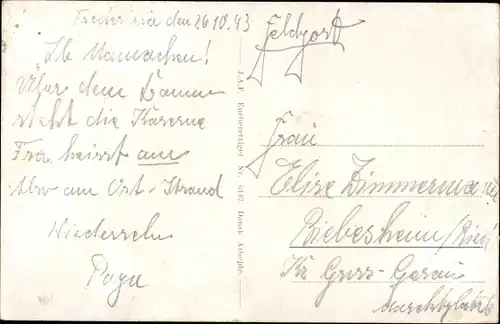 Fredericia den 26.10.43
Lb Mamachen!
Über dem Baum
steht die Kaserne
Frd. heisst am
Abr am Ost-Strand
Wiedersehn
Papa
J.A.F. Eneberettiget Nr. 6142. Dansk Arbejde.
Feldpost
Frau
Elise Zimmermann
Biebesheim/Ried
Kr Gross-Gerau
Marktplatz 6